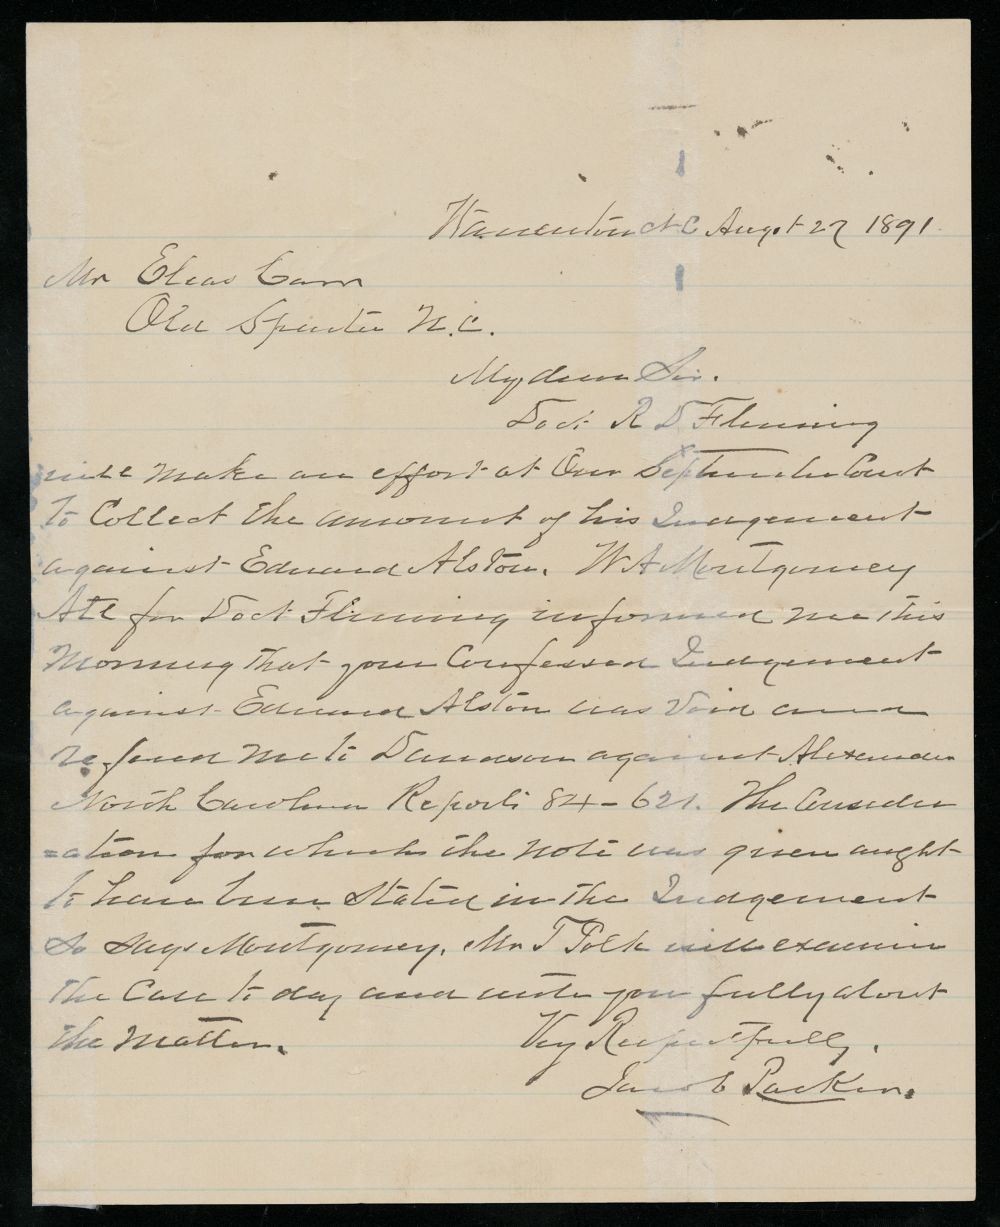 Warrenton N C Augst 27 1891
Mr Elias Carr
Old Sparta N.C.
My dear Sir.
Doct R D Fleming
will make an effort at Our September Court
to Collect the amount of his Judgement
against Edward Alston. W A Montgomery
Att for Doct Fleming informed me this
Morning that your Confessed Judgement
against Edward Alston was Void and
refered me to Davidson against Alexander
North Carolina Reports 84-621. The Consider
=ation for which the note was given aught
to have been Stated in the Judgement
So Says Montgomery. Mr T Polk will examin
the Case to day and write you fully about
the Matter.
Very Respectfully,
Jacob Parker.